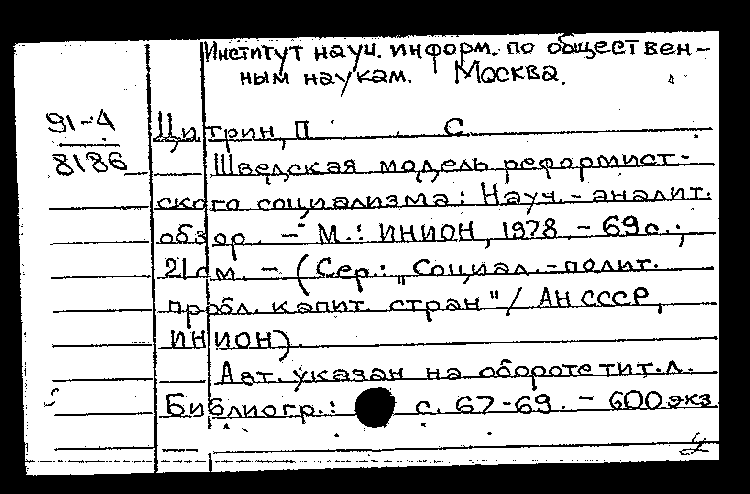 Институт науч. информ. по обществен-
ным наукам. Москва.
91-4
8186
Цитрин, П С
Шведская модель реформист-
ского социализма: Науч.-аналит.
обзор. - М.: ИНИОН, 1978. - 69с.;
21см. - (Сер.: "Социал.-полит.
пробл. капит. стран" / АН СССР,
ИНИОН)
Авт. указан на обороте тит. л.
Библиогр.: с. 67-69. - 600 экз